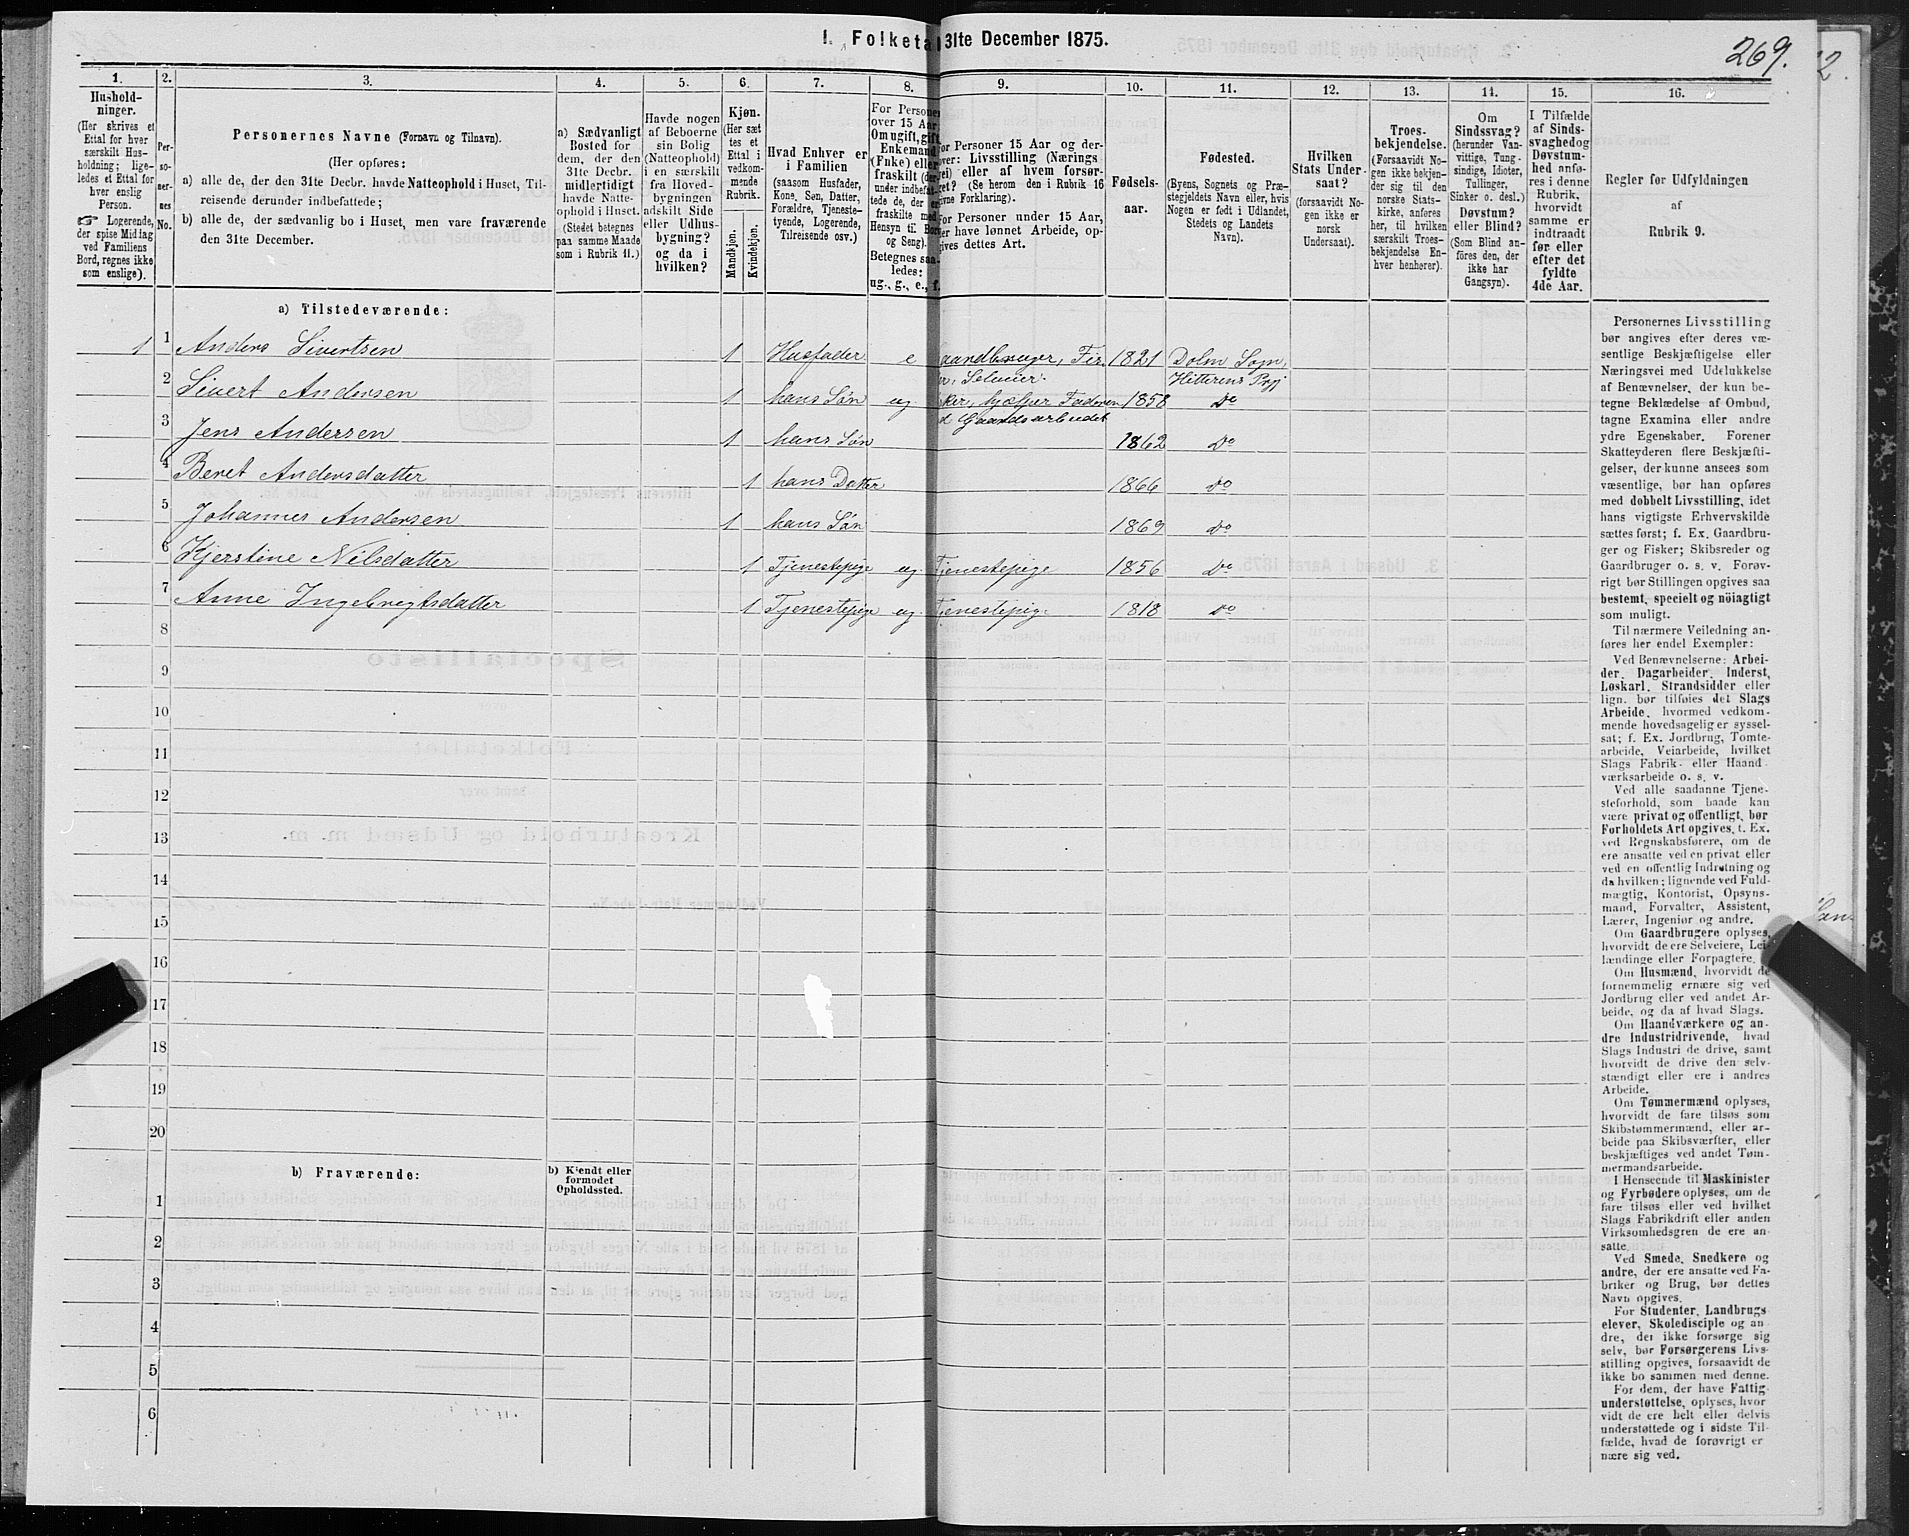 1. Folketa
31te December 1875.
269.
2.
1.
2.
3.
4.
5.
6.
7.
8.
9.
10.
11.
12.
13.
14.
15.
16.
Hushold-
ninger.
(Her skrives et
Ettal for hver
særskilt Hus-
holdning; lige-
ledes et Ettal for
hver enslig
Person.
☞ Logerende,
der spise Middag
ved Familiens
Bord, regnes ikke
som enslige).
Per-
so-
ner-
nes
No.
Personernes Navne (Fornavn og Tilnavn).
(Her opføres:
a) alle de, der den 31te Decbr. havde Natteophold i Huset, Til-
reisende derunder indbefattede;
b) alle de, der sædvanlig bo i Huset, men vare fraværende
den 31te December.
a) Sædvanligt
Bosted for
dem, der den
31te Decbr.
midlertidigt
havde Natte-
ophold i Huset.
(Stedet betegnes
paa samme Maade
som i Rubrik 11.)
Havde nogen
af Beboerne
sin Bolig
(Natteophold)
i en særskilt
fra Hoved-
bygningen
adskilt Side
eller Udhus-
bygning?
og da i
hvilken?
Kjøn.
(Her sæt
tes et
Ettal i
vedkom-
mende
Rubrik.
Mandkjøn.
Kvindekjøn.
Hvad Enhver er
i Familien
(saasom Husfader,
Kone, Søn, Datter,
Forældre, Tjeneste-
tyende, Logerende,
Tilreisende osv.)
For Persone
over 15 Aar
Om ugift, gift
Enkemand
(Enke) eller
fraskilt (der-
under indbefat-
tede de, der e
fraskilte med
Hensyn til Bord
og Seng).
Betegnes saa-
ledes:
ug., g., e., f.
or Personer 15 Aar og der-
over: Livsstilling (Nærings
vei) eller af hvem forsør-
get? (Se herom den i Rubrik 16
givne Forklaring).
For Personer under 15 Aar,
der have lønnet Arbeide, op-
gives dettes Art.
Fødsels-
aar.
Fødested.
(Byens, Sognets og Præ-
stegjeldets Navn eller, hvis
Nogen er født i Udlandet,
Stedets og Landets
Navn).
Hvilken
Stats Under-
saat?
(forsaavidt No-
gen ikke er
norsk
Undersaat).
Troes-
bekjendelse.
(Forsaavidt No-
gen ikke bekjen-
der sig til den
norske Stats-
kirke, anføres
her, til hvilken
særskilt Troes-
bekjendelse En-
hver henhører).
Om
Sindssvag?
(herunder Van-
vittige, Tung-
sindige, Idioter,
Tullinger,
Sinker o. desl.)
Døvstum?
eller Blind?
(Som Blind an-
føres den, der
ikke har
Gangsyn).
I Tilfælde
af Sinds-
svaghed og
Døvstum-
hed anfø-
res i denne
Rubrik,
hvorvidt
samme er
indtraadt
før eller
efter det
fyldte
4de Aar.
Regler for Udfyldningen
af
Rubrik 9.
a) Tilstedeværende:
1 1 Anders Sivertsen 1 Husfader e aardbruger, Fis. 1821 Dolm Sogn,
Selveier. Hitterens Pgj
2 Sivert Andersen 1 hans Søn ug ker, hjælper Faderen 1858 Do
d Gaardsarbeidet
3 Jens Andersen 1 hans Søn 1862 Do
4 Beret Andersdatter 1 hans Datter 1866 Do
5 Johannes Andersen 1 hans Søn 1869 Do
6 Kjerstine Nilsdatter 1 Tjenestepige ug. Tjenestepige 1856 Do
7 Anne Ingebregtsdatter 1 Tjenestepige ug. Tjenestepige 1818 Do
8
9
10
11
12
13
14
15
16
17
18
19
20
b) Fraværende:
b) Kjendt eller
formodet
Opholdssted.
1
2
3
4
5
6
Personernes Livsstilling
bør angives efter deres væ-
sentlige Beskjæftigelse eller
Næringsvei med Udelukkelse
af Benævnelser, der kun be-
tegne Beklædelse af Ombud,
tagne Examina eller andre
ydre Egenskaber. Forener
Skatteyderen flere Beskjæfti-
gelser, der kunne ansees som
væsentlige, bør han opføres
med dobbelt Livsstilling, idet
hans vigtigste Erhvervskilde
sættes først; f. Ex. Gaardbru-
ger og Fisker; Skibsreder og
Gaardbruger o. s. v. Forøv-
rigt bør Stillingen opgives saa
bestemt, specielt og nöiagtigt
som muligt.
Til nærmere Veiledning an-
føres her endel Exempler:
Ved Benævnelserne: Arbei-
der, Dagarbeider, Inderst,
Løskarl, Strandsidder eller
lign. bør tilføies det Slags
Arbeide, hvormed vedkom-
mende hovedsagelig er syssel-
sat; f. Ex. Jordbrug, Tomte-
arbeide, Veiarbeide, hvilket
Slags Fabrik- eller Haand-
værksarbeide o. s. v.
Ved alle saadanne Tjene-
steforhold, som baade kan
være privat og offentligt, bør
Forholdets Art opgives, t. Ex.
ved Regnskabsførere, om de
ere ansatte ved en privat eller
ved en offentlig Indretning og
da hvilken; lignende ved Fuld-
mægtig, Kontorist, Opsyns-
mand, Forvalter, Assistent,
Lærer, Ingeniør og andre.
Om Gaardbrugere oplyses,
hvorvidt de ere Selveiere, Lei-
lændinge eller Forpagtere.
Om Husmænd, hvorvidt de
fornemmelig ernære sig ved
Jordbrug eller ved andet Ar-
beide, og da af hvad Slags.
Om Haandværkere og an-
dre Industridrivende, hvad
Slags Industri de drive, samt
hvorvidt de drive den selv-
stændigt eller ere i andres
Arbeide.
Om Tømmermænd oplyses,
hvorvidt de fare tilsøs som
Skibstømmermænd, eller ar-
beide paa Skibsværfter, eller
beskjæftiges ved andet Tøm-
mermandsarbeide.
I Henseende til Maskinister
og Fyrbødere oplyses, om de
fare tilsøs eller ved hvilket
Slags Fabrikdrift eller anden
Virksomhedsgren de ere an-
satte.
Ved Smede, Snedkere og
andre, der ere ansatte ved Fa-
briker og Brug, bør dettes
Navn opgives.
For Studenter, Landbrugs
elever, Skoledisciple og an
dre, der ikke forsørge sig
selv, bør Forsørgerens Livs-
stilling opgives, forsaavidt de
ikke bo sammen med denne.
For dem, der have Fattig
understøttelse, oplyses, hvor
vidt de ere helt eller delvis
understøttede og i sidste Til-
fælde, hvad de forøvrigt er
nære sig ved.